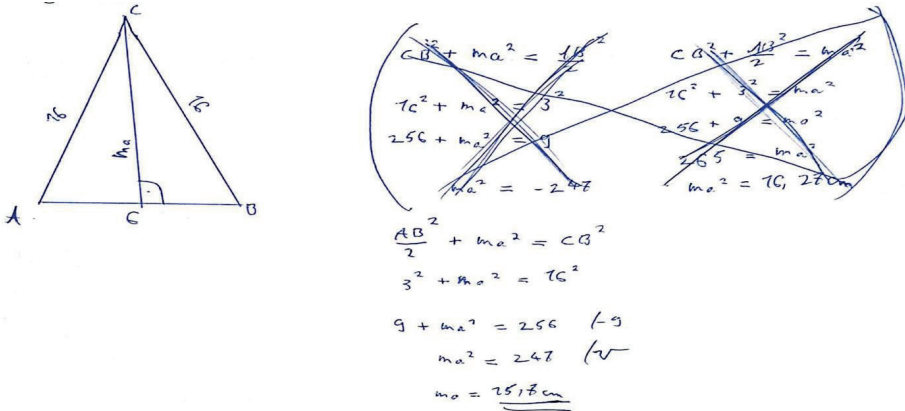 C
16
16
ma
A
6
B
CB² + ma² = AB²/2
16² + ma² = 3²
256 + ma² = 9
ma² = -247
CB² + AB²/2 = ma²
16² + 3² = ma²
256 + 9 = ma²
265 = ma²
ma² = 16,27cm
AB²/2 + ma² = CB²
3² + ma² = 16²
9 + ma² = 256 /-9
ma² = 247 /√
ma = 15,7 cm